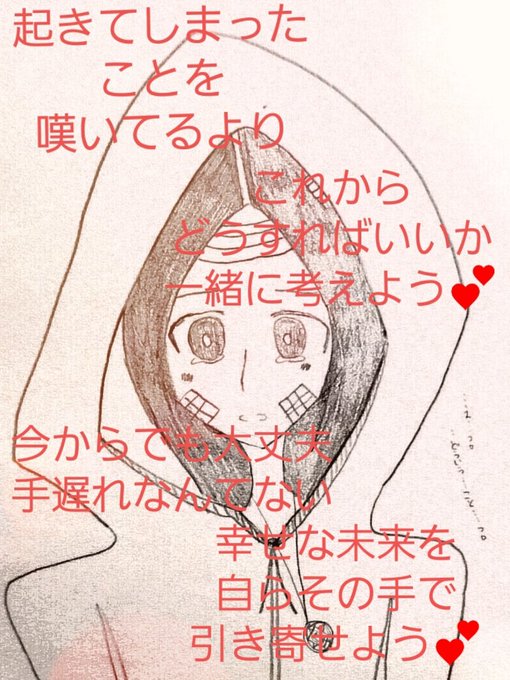 起きてしまった
ことを
嘆いてるより
これから
どうすればいいか
一緒に考えよう💕
今からでも大丈夫
手遅れなんてない
幸せな未来を
自らその手で
引き寄せよう💕